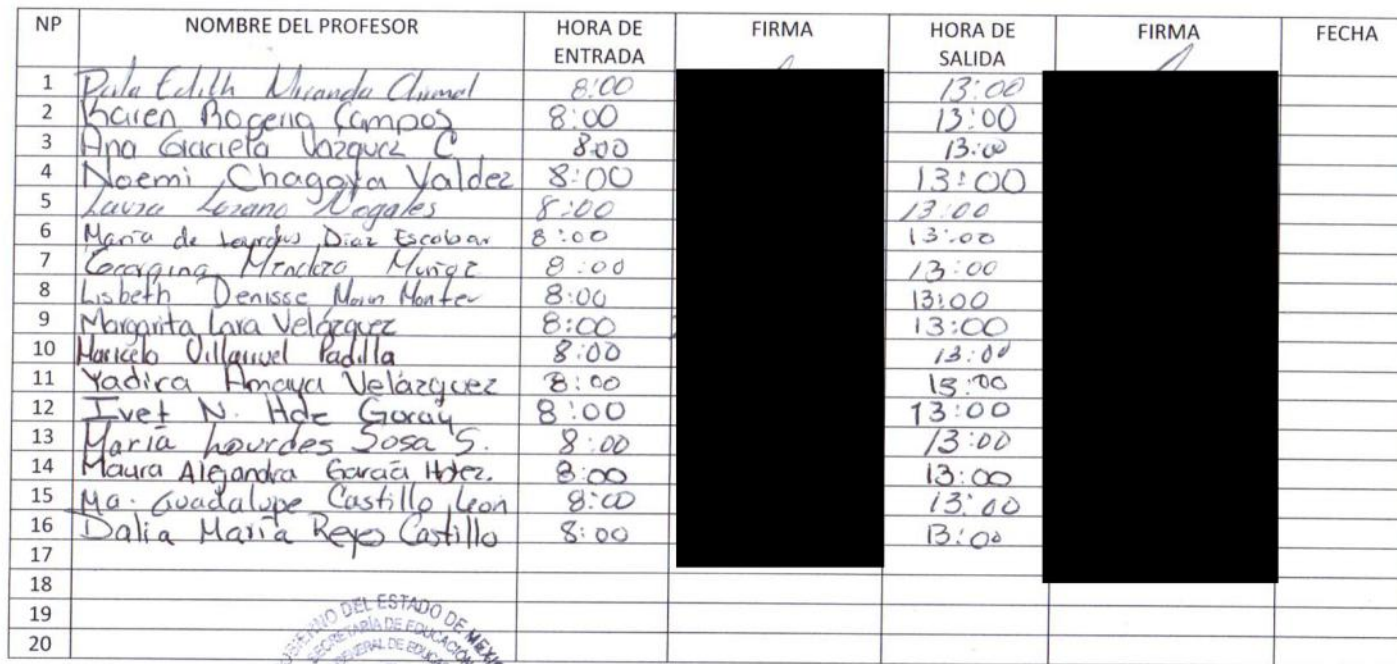 NP NOMBRE DEL PROFESOR HORA DE ENTRADA FIRMA HORA DE SALIDA FIRMA FECHA
1 Edith Miranda 8:00 13:00
2 Karen Rogerio Campos 8:00 13:00
3 Ana Graciela Vazquez C. 8:00 13:00
4 Noemi Chagoya Valdez 8:00 13:00
5 Laura Lozano Nogales 8:00 13:00
6 María de Lourdes Díaz Escobar 8:00 13:00
7 Georgina Mendoza Muñoz 8:00 13:00
8 Lisbeth Denisse Monter 8:00 13:00
9 Margarita Lara Velázquez 8:00 13:00
10 Maricela Villarruel Padilla 8:00 13:00
11 Yadira Amaya Velázquez 8:00 13:00
12 Ivet N. Hdz Garay 8:00 13:00
13 María Lourdes Sosa S. 8:00 13:00
14 Maura Alejandra García Hdez. 8:00 13:00
15 Ma. Guadalupe Castillo Leon 8:00 13:00
16 Dalia María Reyes Castillo 8:00 13:00
17
18
19
20
GOBIERNO DEL ESTADO DE MEXICO
SECRETARÍA DE EDUCACIÓN
GENERAL DE